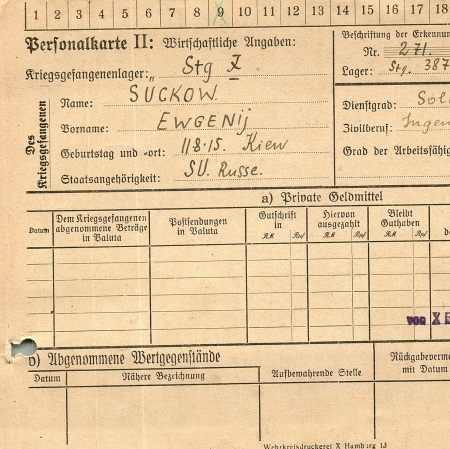 1 2 3 4 5 6 7 8 9 10 11 12 13 14 15 16 17 18
Personalkarte II: Wirtschaftliche Angaben:
Kriegsgefangenenlager: Stg X
Beschriftung der Erkennun
Nr. 271.
Lager: Stg. 387
Des Kriegsgefangenen
Name: SUCKOW.
Vorname: EWGENIJ
Geburtstag und -ort: 11.8.15. Kiew
Staatsangehörigkeit: SU. Russe.
Dienstgrad: Sol
Zivilberuf: Ingen
Grad der Arbeitsfähig
a) Private Geldmittel
Datum
Dem Kriegsgefangenen abgenommene Beträge in Valuta
Postsendungen in Valuta
Gutschrift in
RM Rpf
Hiervon ausgezahlt
RM Rpf
Bleibt Guthaben
RM Rpf
von X
b) Abgenommene Wertgegenstände
Datum
Nähere Bezeichnung
Aufbewahrende Stelle
Rückgabeverme
mit Datum
Wehrkreisdruckerei X Hamburg 13